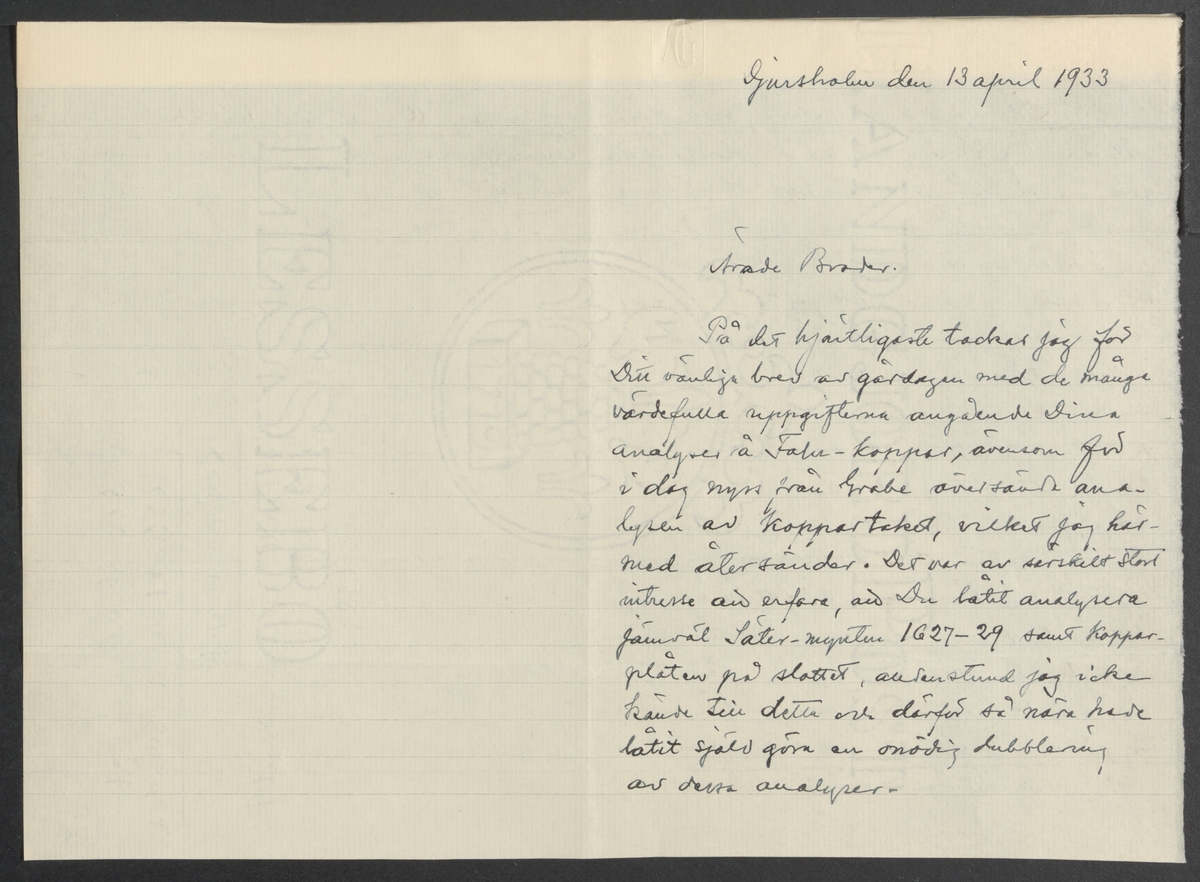 Djursholm den 13 april 1933
Ärade Broder.
På det hjärtligaste tackar jag för
Ditt vänliga brev av gårdagen med de många
värdefulla uppgifterna angående Dina
analyser å Falu-koppar, ävensom för
i dag nyss från Grabe översända ana-
lysen av koppartaket, vilket jag här-
med återsänder. Det var av särskilt stort
intresse att erfara, att Du låtit analysera
jämväl Säter-mynten 1627-29 samt koppar-
plåten på slottet, alldenstund jag icke
kände till detta och därför så nära hade
låtit själv göra en onödig dubblering
av dessa analyser.